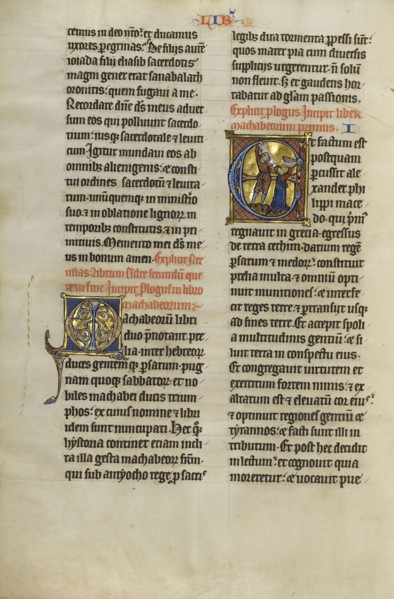 LIB
cemus in deo nr̄o: et ducamus
uxores peregrinas. De filijs autē
ioiada filij eliasib sacerdotis
magni gener erat sanaballath
oronitis: quem fugaui a me.
Recordare dn̄e ds̄ meus aduer
sum eos qui polluunt sacerdo
tium: iusq; sacerdotale & leuiti
cum Igitur mundaui eos ab
omnibus alienigenis: & consti
tui ordines sacerdotū & leuita
rum: unūquemq; in ministerio
suo: & in oblatione lignoꝝ in
temporibꝫ constitutis: & in pri
mitiuis. Memento mei ds̄ me
us in bonum amen. Explicit
Esdre secundū
fine. Incipit Plogus in libro
machabeorum:
Machabeorū libri
duo p̄notant pre
lia: inter hebreoꝝ
duces gentemq; p̄sarum: pug
nam quoq; sabbatoꝝ: et no
biles machabei ducis trium
phos: ex cuius nomine & libri
idem sunt nuncupati. Hec q̄q;
hystoria continet etiam incli
ta illa gesta machabeoꝝ fr̄m:
qui sub anthyocho rege p sacris
legibꝫ dira tormenta ꝑpessi sūt:
quos mater pia cum diuersis
supplicijs urgerentur n̄ solū
non fleuit: sꝫ et gaudens hor
tabatur ad glām passionis.
Explicit plogus. Incipit liber
machabeorum primus. I
Et factum est
postquam
ꝑcussit ale
xander phi
lippi mace
do. qui p̄m̄
regnauit in grecia: egressus
de terra cethim. darium regē
ꝑsarum & medoꝝ: constituit
prelia multa: & omniū opti
nuit munitiones: & interfe
cit reges terre: & ꝑtransijt usq;
ad fines terre. Et accepit spoli
a multitudinis gentiū: & si
luit terra in conspectu eius.
Et congregauit uirtutem et
exercitum fortem nimis: & ex
altatum est & eleuatū cor eiuꝰ.
& optinuit regiones gentiū &
tyrannos: & facti sunt illi in
tributum. Et post hec decidit
in lectum: et cognouit quia
moreretur: & uocauit pue